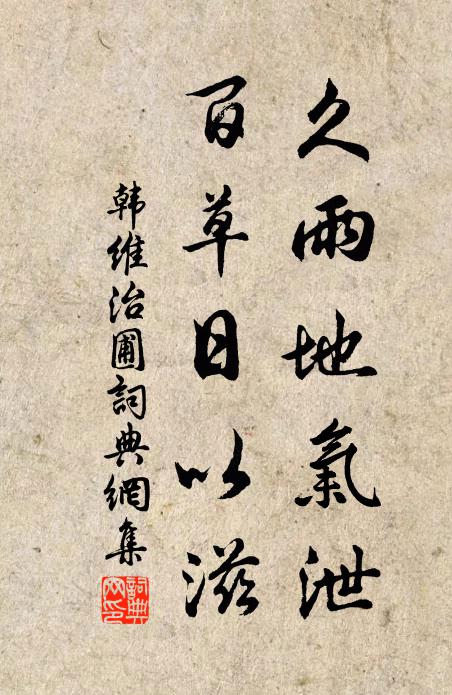 久雨地氣泄
百草日以滋
韩維治圃詞典網集
詞典
网印